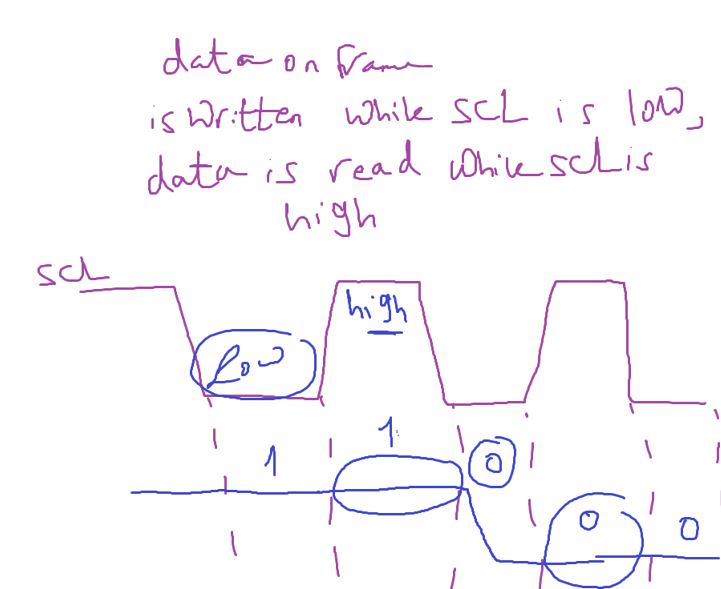 data on frame
is written while SCL is low,
data is read while SCL is
high
SCL
high
Low
1
1
0
0
0